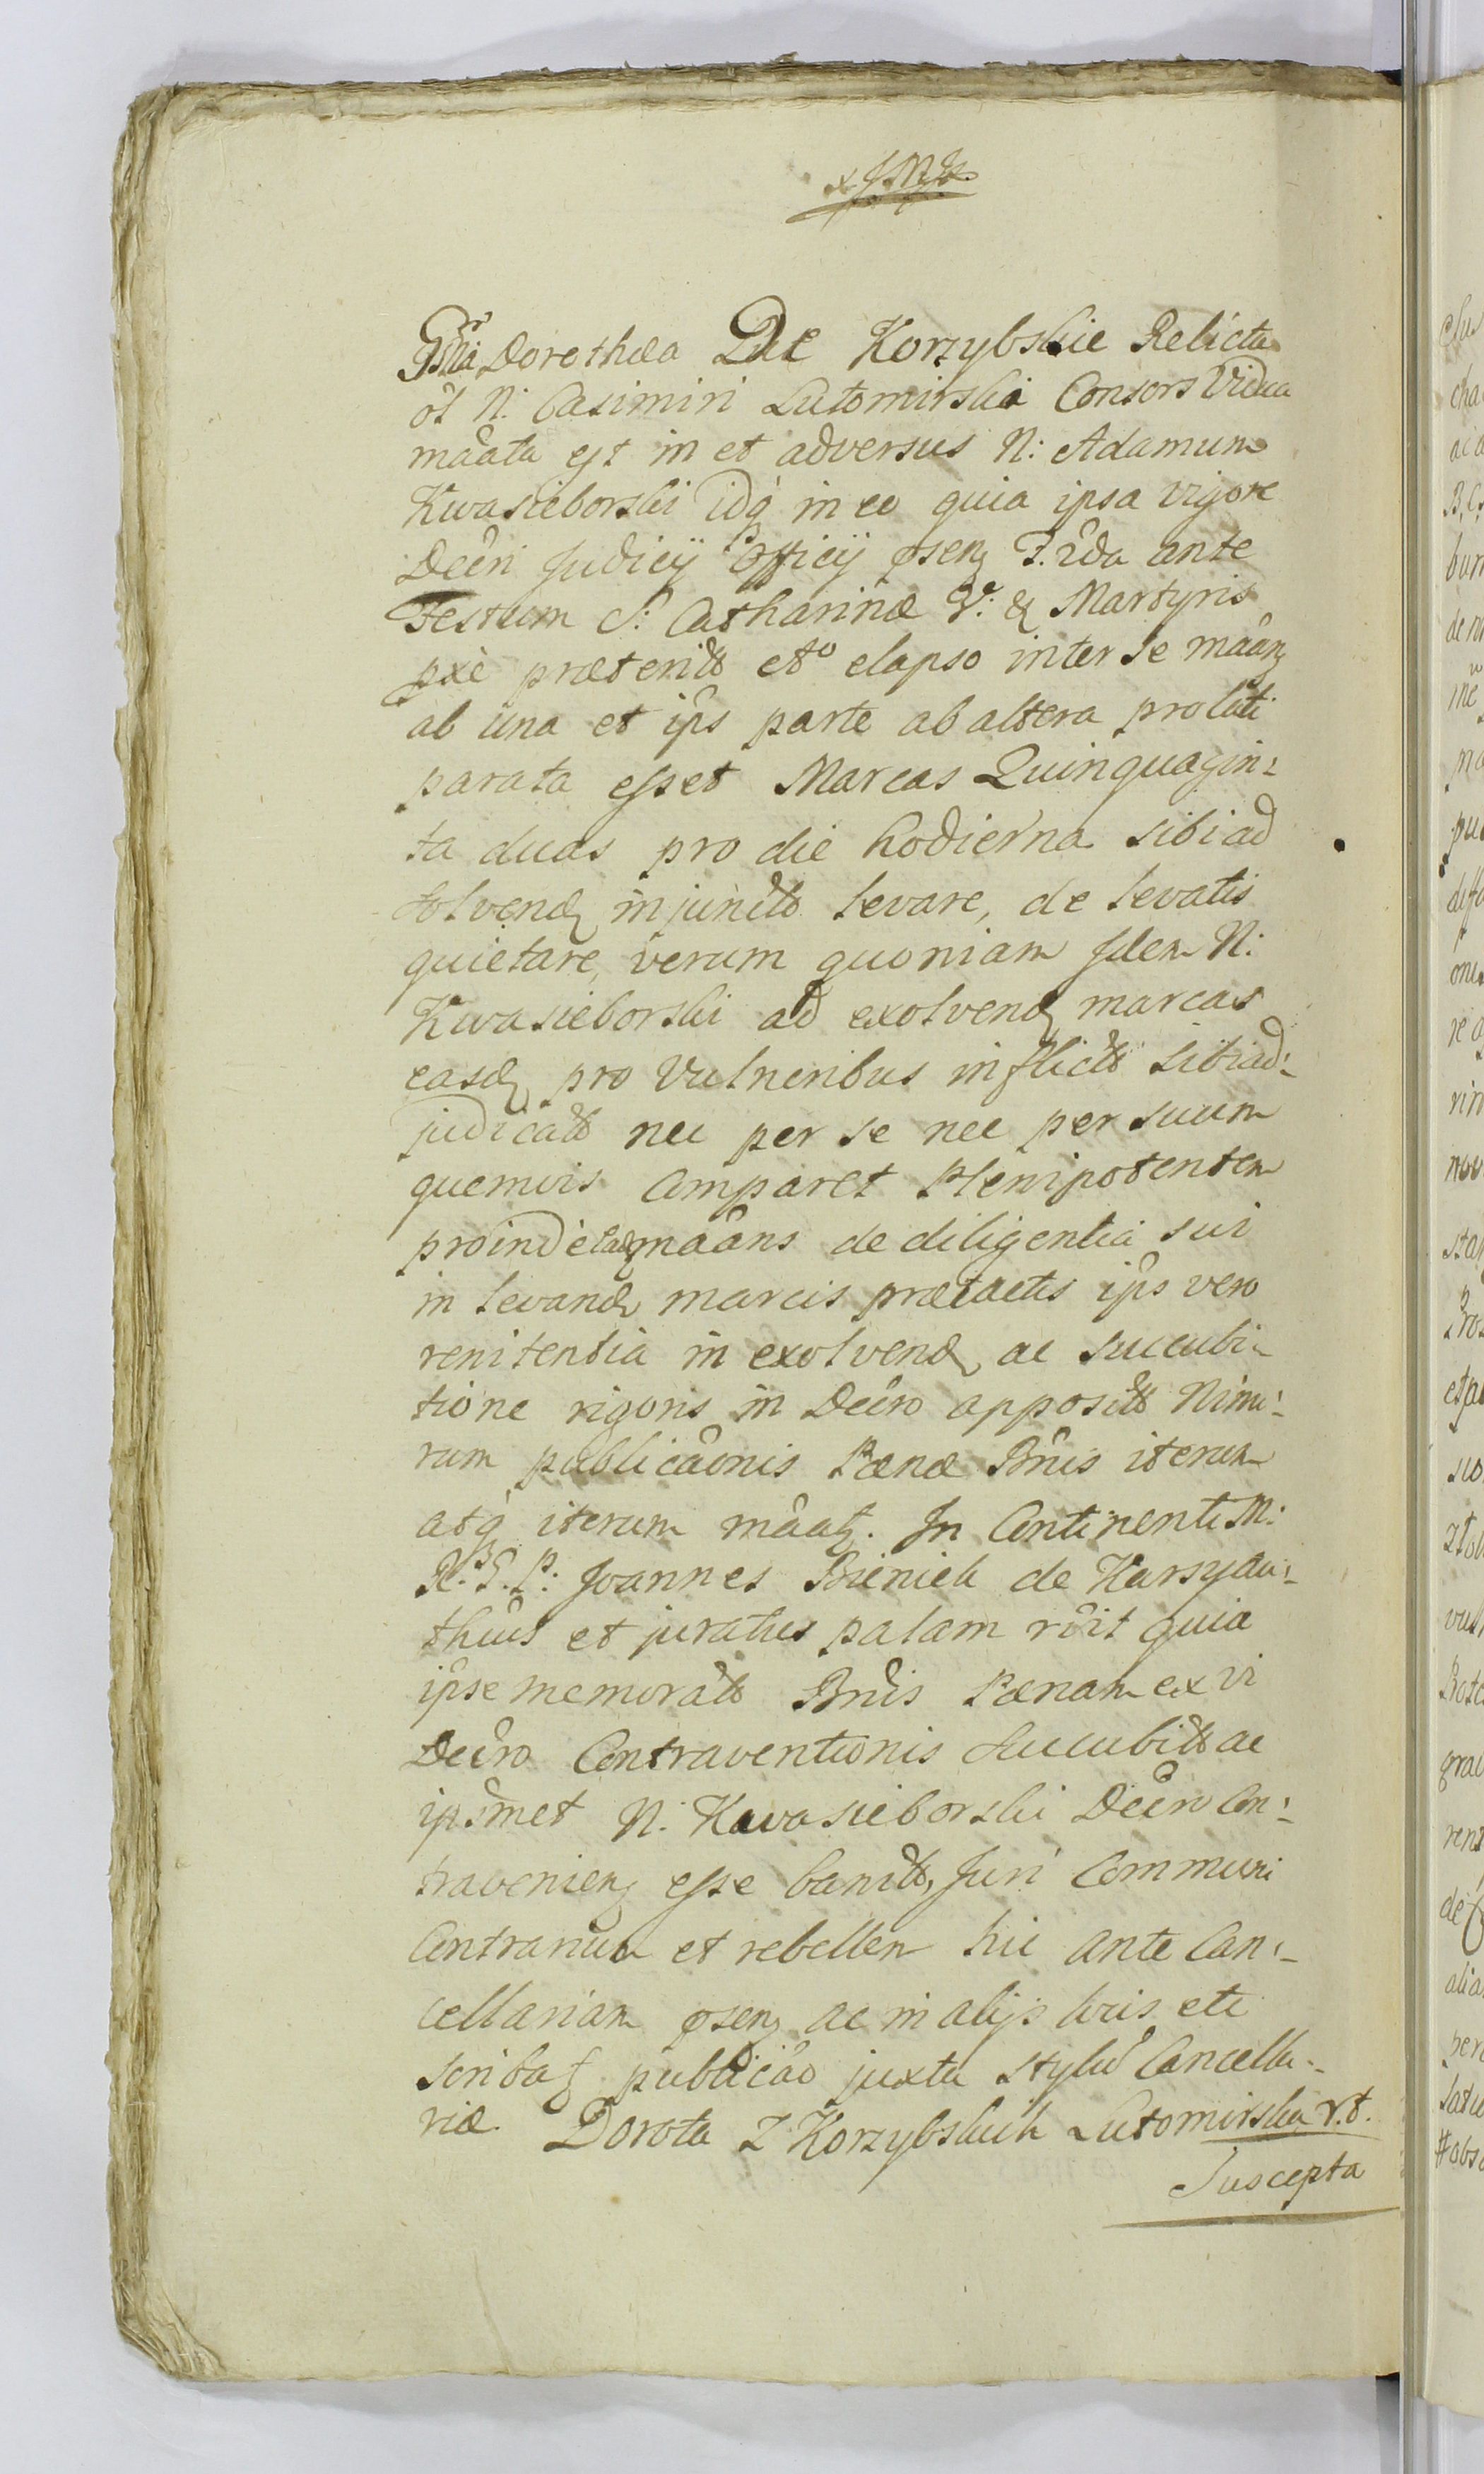 Gsna Dorothea De Korzybskie Relicta
ol N: Casimiri Lutomirski Consors Vidua
maata est in et adversus N: Adamum
Kwasieborski idq in eo quia ipsa vigore
Decri Judicij Officij psenz F. 2da ante
Festum S: Catharinæ V: & Martyris
pxe præterito etc elapso inter se maanz
ab una et ips parte ab altera prolati
parata esset Marcas Quinquagin:
ta duas pro die hodierna sibi ad
solvendz injuncto levare, de levatis
quietare, verum quoniam Idem N:
Kwasieborski ad exolvendz marcas
easdz pro Vulneribus inflictis sibi ad:
judicatis nec per se nec per suum
quemvis Comparet Plenipotentem
proinde eadz maans de diligentia sui
in levandz marcis prætactis ips vero
renitentia in exolvendz ac succubi:
tione rigoris in Decro apposito Nimi:
rum publicaonis Pænæ Bnis iterum
atq iterum maatz. In Continenti M:
R. G. P: Joannes Bieniek de Karsy
thus et juratus palam rvit quia
ipse memorato Bnis Pænam ex vi
Decro Contraventionis Succubito ac
ipsmet N. Kwasieborski Decro Con:
travenienz esse banito, Juri Communi
Contrarium et rebellem hic ante Can:
cellariam psenz ac in alijs lcis etc
scribatz publicao juxta stylu Cancella:
riæ Dorota z Korzybskich Lutomirska
Suscepta